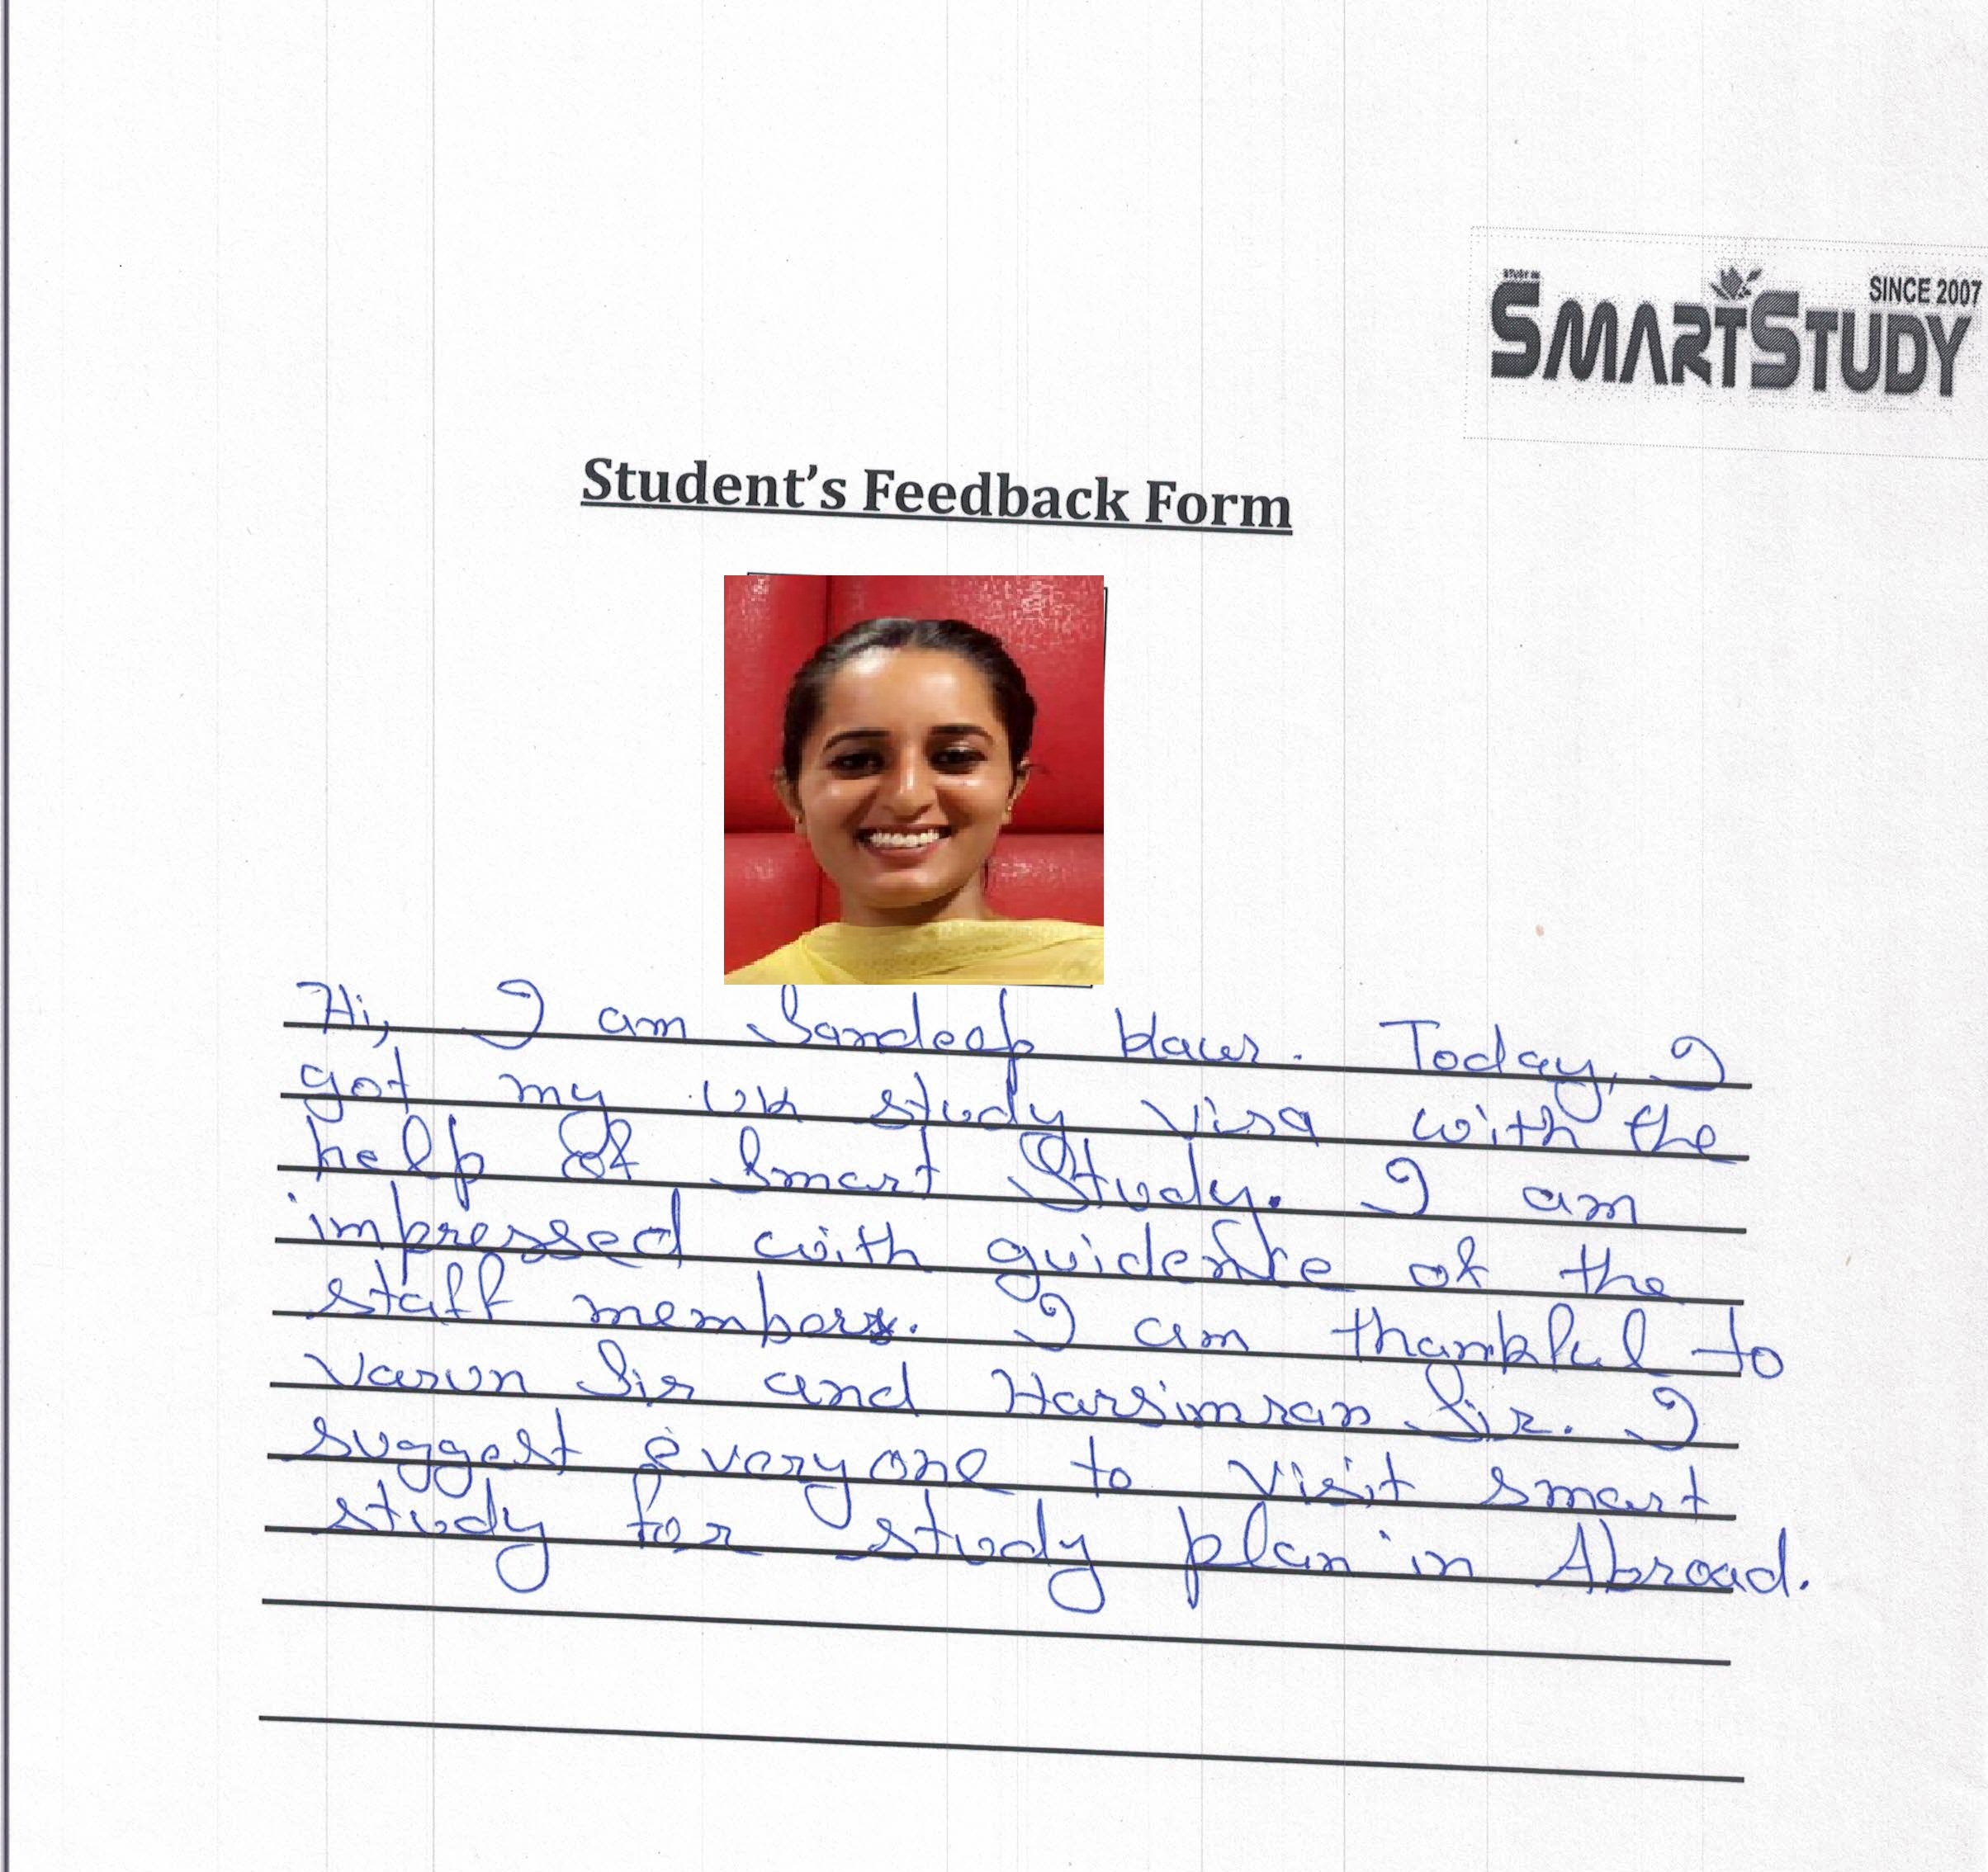 SINCE 2007
SMARTSTUDY
Student's Feedback Form
Hi, I am Sandeep Kaur. Today, I
got my UK study visa with the
help of Smart Study. I am
impressed with guidence of the
staff members. I am thankful to
Varun Sir and Harsimran Sir. I
suggest everyone to visit smart
study for study plan in Abroad.